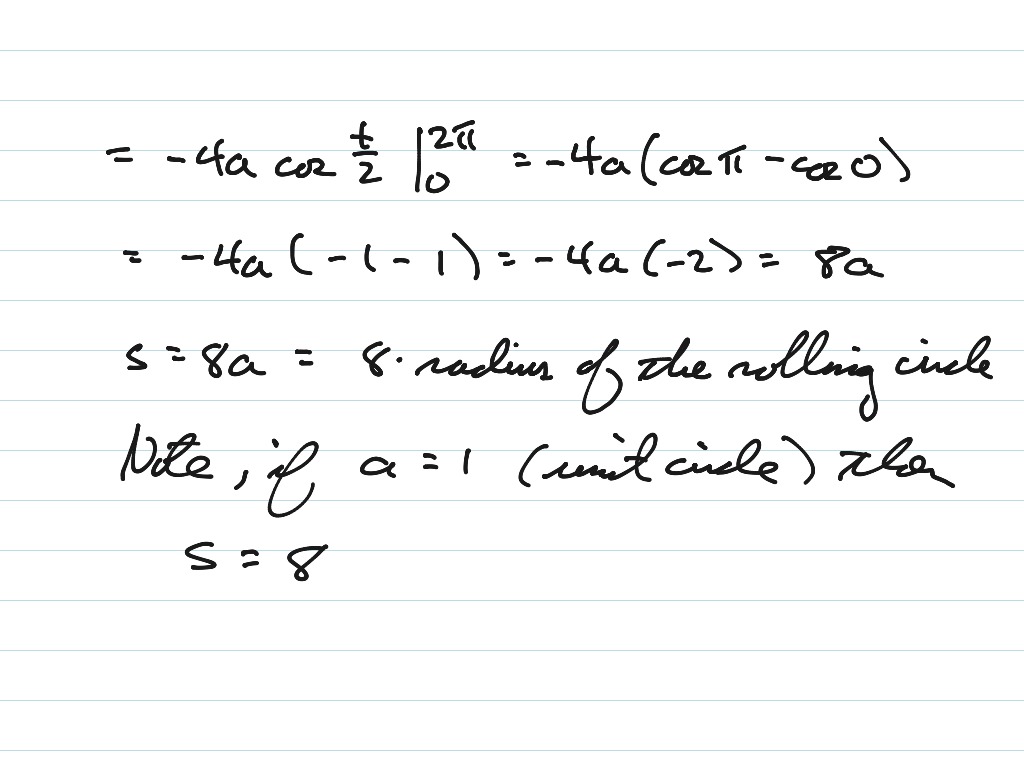 = -4a cos t/2 |₀^2π = -4a(cos π - cos 0)
= -4a(-1-1) = -4a(-2) = 8a
s = 8a = 8· radius of the rolling circle
Note, if a = 1 (unit circle) then
s = 8